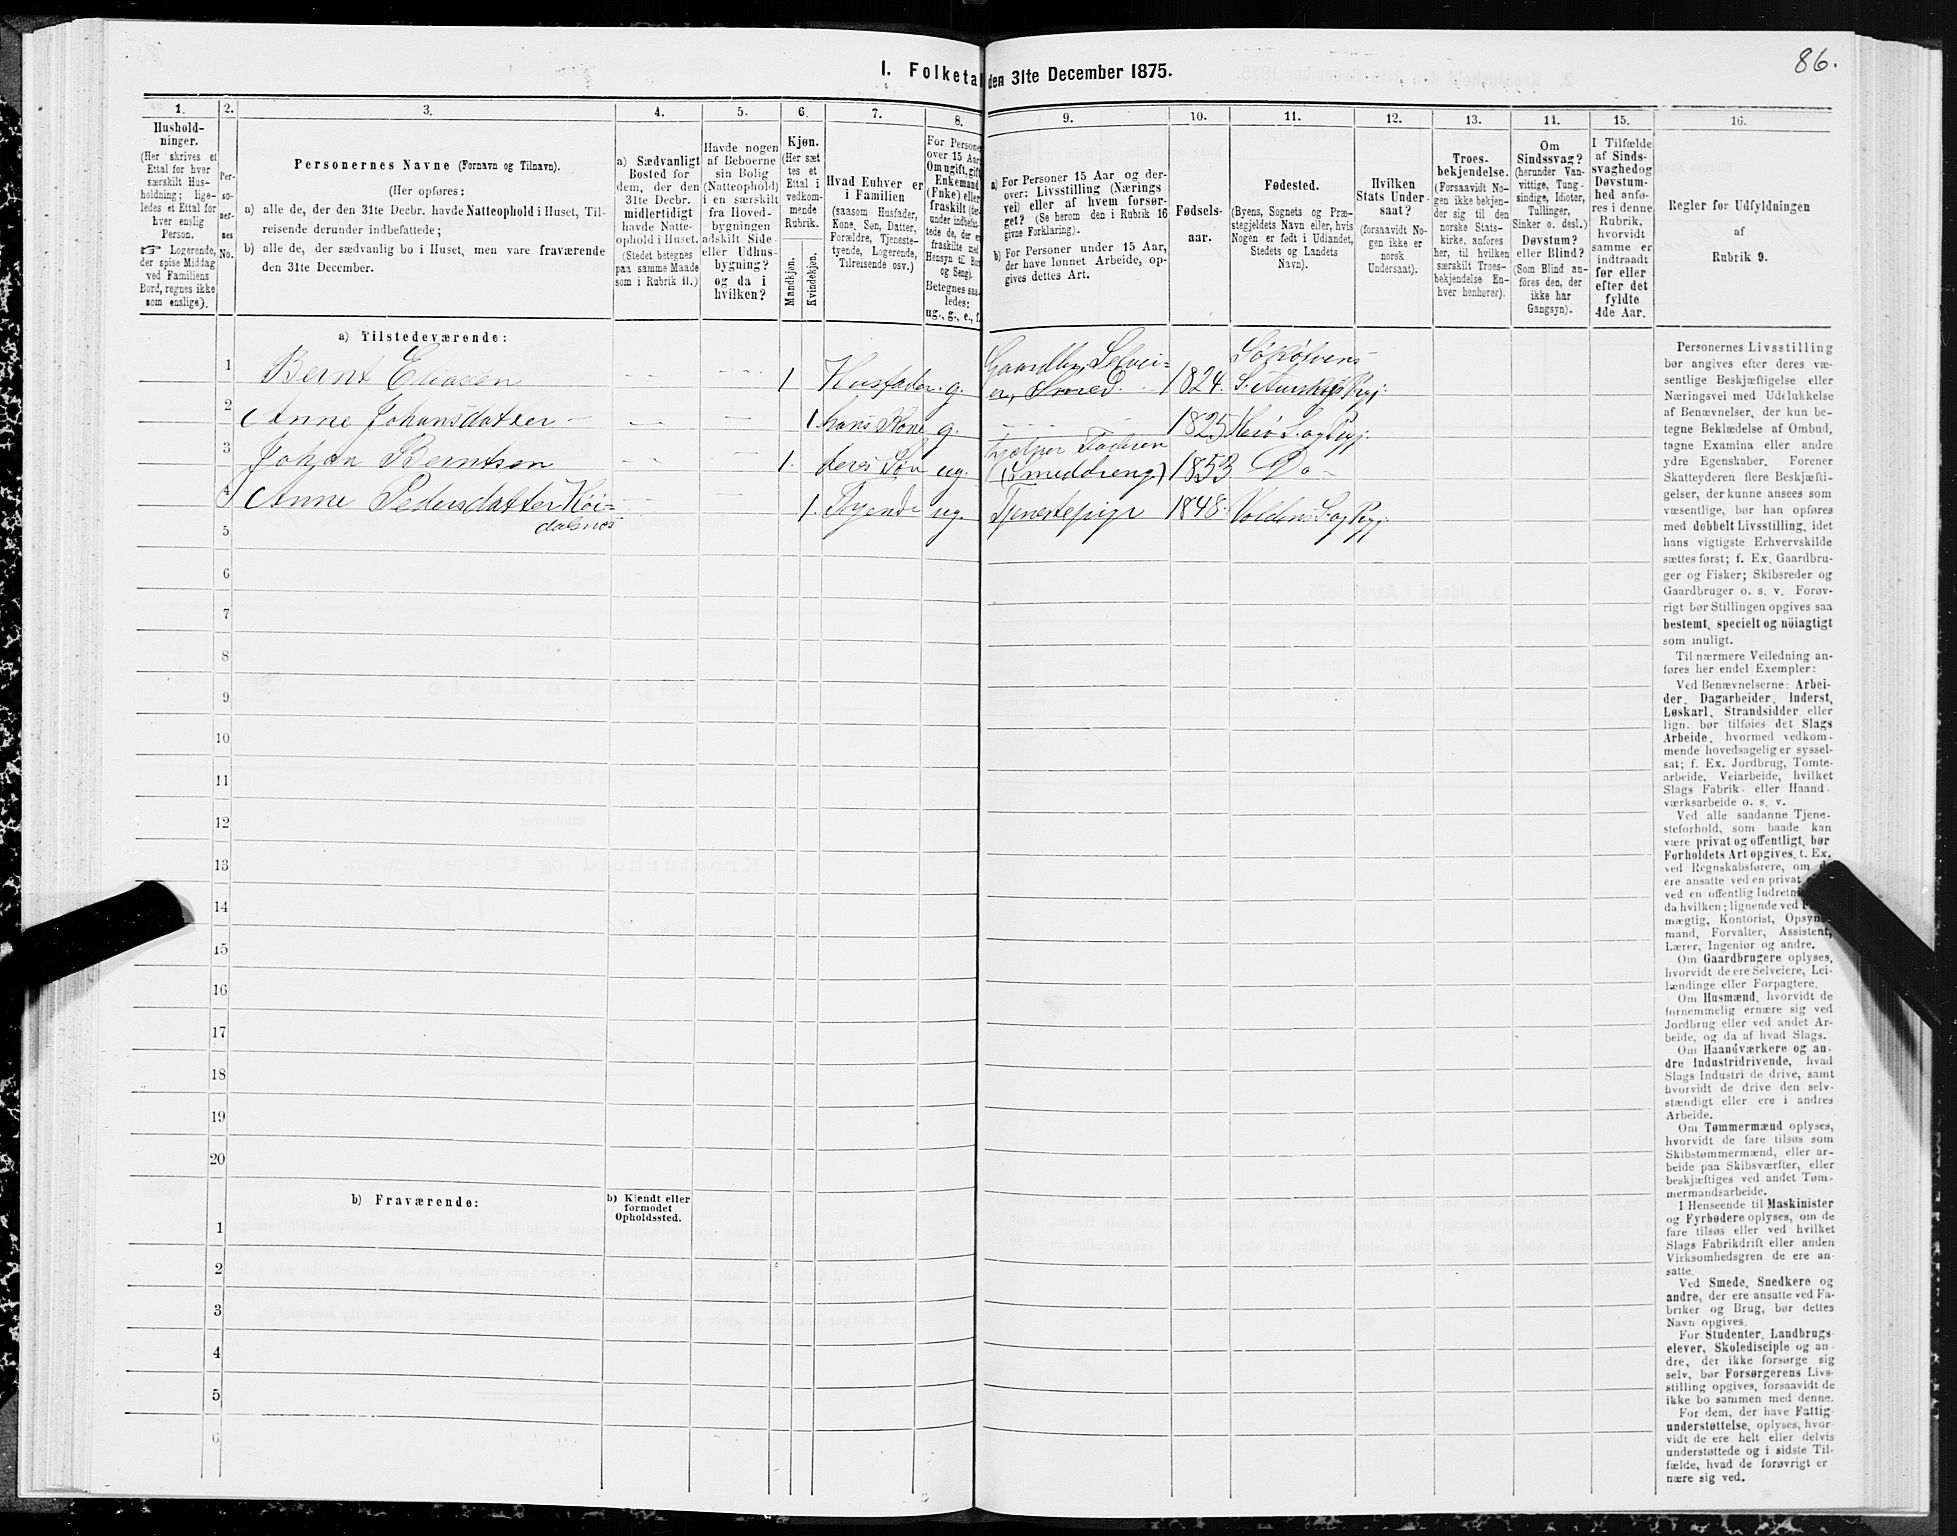 86.
I. Folketal den 31te December 1875.
1. 2. 3. 4. 5. 6. 7. 8. 9. 10. 11. 12. 13. 14. 15. 16.
Hushold-
ninger.
(Her skrives et
Ettal for hver
særskilt Hus-
holdning; lige-
ledes et Ettal for
hver enslig
Person.
☞ Logerende,
der spise Middag
ved Familiens
Bord, regnes ikke
som enslige).
Per-
so-
ner-
nes
No.
Personernes Navne (Fornavn og Tilnavn).
(Her opføres:
a) alle de, der den 31te Decbr. havde Natteophold i Huset, Til-
reisende derunder indbefattede;
b) alle de, der sædvanlig bo i Huset, men vare fraværende
den 31te December.
a) Sædvanligt
Bosted for
dem, der den
31te Decbr.
midlertidigt
havde Natte-
ophold i Huset.
(Stedet betegnes
paa samme Maade
som i Rubrik 11.)
Havde nogen
af Beboerne
sin Bolig
(Natteophold)
i en særskilt
fra Hoved-
bygningen
adskilt Side-
eller Udhus-
bygning?
og da i
hvilken?
Kjøn.
(Her sæt
tes et
Ettal i
vedkom-
mende
Rubrik.
Mandkjøn.
Kvindekjøn.
Hvad Enhver er
i Familien
(saasom Husfader,
Kone, Søn, Datter,
Forældre, Tjeneste-
tyende, Logerende,
Tilreisende osv.)
For Persone
over 15 Aar
Om ugift, gift
Enkemand
(Enke) eller
fraskilt (der-
under indbefat-
tede de, der er
fraskilte med
Hensyn til Bo
og Seng).
Betegnes saa-
ledes:
ug., g., e., f.
a) For Personer 15 Aar og der-
over: Livsstilling (Nærings
vei) eller af hvem forsør-
get? (Se herom den i Rubrik 16
givne Forklaring).
b) For Personer under 15 Aar,
der have lønnet Arbeide, op-
gives dettes Art.
Fødsels-
aar.
Fødested.
(Byens, Sognets og Præ-
stegjeldets Navn eller, hvis
Nogen er født i Udlandet,
Stedets og Landets
Navn).
Hvilken
Stats Under-
saat?
(forsaavidt No-
gen ikke er
norsk
Undersaat).
Troes-
bekjendelse.
(Forsaavidt No-
gen ikke bekjen-
der sig til den
norske Stats-
kirke, anføres
her, til hvilken
særskilt Troes-
bekjendelse En-
hver henhører).
Om
Sindssvag?
(herunder Van-
vittige, Tung-
sindige, Idioter,
Tullinger,
Sinker o. desl.)
Døvstum?
eller Blind?
(Som Blind an-
føres den, der
ikke har
Gangsyn).
I Tilfælde
af Sinds-
svaghed og
Døvstum-
hed anfø-
res i denne
Rubrik,
hvorvidt
samme er
indtraadt
før eller
efter det
fyldte
4de Aar.
Regler for Udfyldningen
af
Rubrik 9.
a) Tilstedeværende:
1 Bernt Eliasen 1 Husfader g. Gaardbr. Selvei-
er, Smed 1824. Søkølvens
S. Aurskogs Pgj.
2 Anne Johansdatter 1. hans Kone g. 1825 Herø S. og Pgj.
3 Johan Berntsen 1. deres Søn ug. hjelper Faderen
(Smeddreng) 1853 Do
4 Anne Pedersdatter Køi-
dalsnes 1. Tyende ug. Tjenestepige 1848. Voldens S. og Pgj.
5
6
7
8
9
10
11
12
13
14
15
16
17
18
19
20
b) Fraværende:
b) Kjendt eller
formodet
Opholdssted.
1
2
3
4
5
6
Personernes Livsstilling
bør angives efter deres væ-
sentlige Beskjæftigelse eller
Næringsvei med Udelukkelse
af Benævnelser, der kun be-
tegne Beklædelse af Ombud,
tagne Examina eller andre
ydre Egenskaber. Forener
Skatteyderen flere Beskjæfti-
gelser, der kunne ansees som
væsentlige, bør han opføres
med dobbelt Livsstilling, idet
hans vigtigste Erhvervskilde
sættes først; f. Ex. Gaardbru-
ger og Fisker; Skibsreder og
Gaardbruger o. s. v. Forøv-
rigt bør Stillingen opgives saa
bestemt, specielt og nöiagtigt
som muligt.
Til nærmere Veiledning an-
føres her endel Exempler:
Ved Benævnelserne: Arbei-
der, Dagarbeider, Inderst,
Løskarl, Strandsidder eller
lign. bør tilføies det Slags
Arbeide, hvormed vedkom-
mende hovedsagelig er syssel-
sat; f. Ex. Jordbrug, Tomte-
arbeide, Veiarbeide, hvilket
Slags Fabrik- eller Haand-
værksarbeide o. s. v.
Ved alle saadanne Tjene-
steforhold, som baade kan
være privat og offentligt, bør
Forholdets Art opgives, t. Ex.
ved Regnskabsførere, om d
ere ansatte ved en privat
ved en offentlig Indretn
da hvilken; lignende ved F
mægtig, Kontorist, Opsyns
mand, Forvalter, Assistent,
Lærer, Ingeniør og andre.
Om Gaardbrugere oplyses,
hvorvidt de ere Selveiere, Lei-
lændinge eller Forpagtere.
Om Husmænd, hvorvidt de
fornemmelig ernære sig ved
Jordbrug eller ved andet Ar-
beide, og da af hvad Slags.
Om Haandværkere og an-
dre Industridrivende, hvad
Slags Industri de drive, samt
hvorvidt de drive den selv-
stændigt eller ere i andres
Arbeide.
Om Tømmermænd oplyses,
hvorvidt de fare tilsøs som
Skibstømmermænd, eller ar-
beide paa Skibsværfter, eller
beskjæftiges ved andet Tøm-
mermandsarbeide.
I Henseende til Maskinister
og Fyrbødere oplyses, om de
fare tilsøs eller ved hvilket
Slags Fabrikdrift eller anden
Virksomhedsgren de ere an-
satte.
Ved Smede, Snedkere og
andre, der ere ansatte ved Fa-
briker og Brug, bør dettes
Navn opgives.
For Studenter, Landbrugs-
elever, Skoledisciple og an-
dre, der ikke forsørge sig
selv, bør Forsørgerens Livs-
stilling opgives, forsaavidt de
ikke bo sammen med denne.
For dem, der have Fattig-
understøttelse, oplyses, hvor-
vidt de ere helt eller delvis
understøttede og i sidste Til-
fælde, hvad de forøvrigt er
nære sig ved.